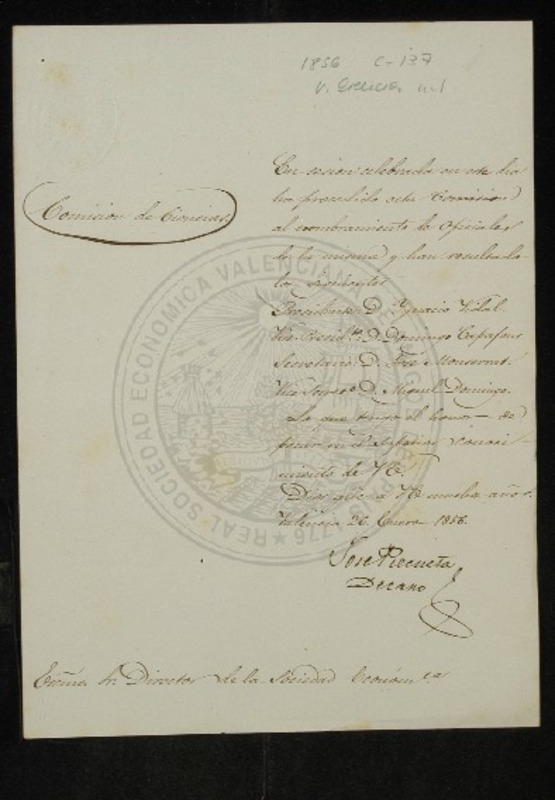 1856 C-137
V. Ciencias n.1
Comision de Ciencias
En sesion celebrada en este dia
ha procedido esta Comision
al nombramiento de Oficiales
de la misma y han resultado
los siguientes
Presidente D. Ignacio Vidal
Vice Presid.te D. Domingo Capafons
Secretario D. José Monserrat
Vice Secret.o D. Miguel Domingo.
Lo que tengo el honor de
poner en el Superior conoci-
miento de V.E.
Dios gde a VE muchos años.
Valencia 26 Enero 1856.
Jose Pizcueta
Decano
Exmo. Sr. Director de la Sociedad Económ.ca
REAL SOCIEDAD ECONOMICA VALENCIANA DE AMIGOS DEL PAIS 1776